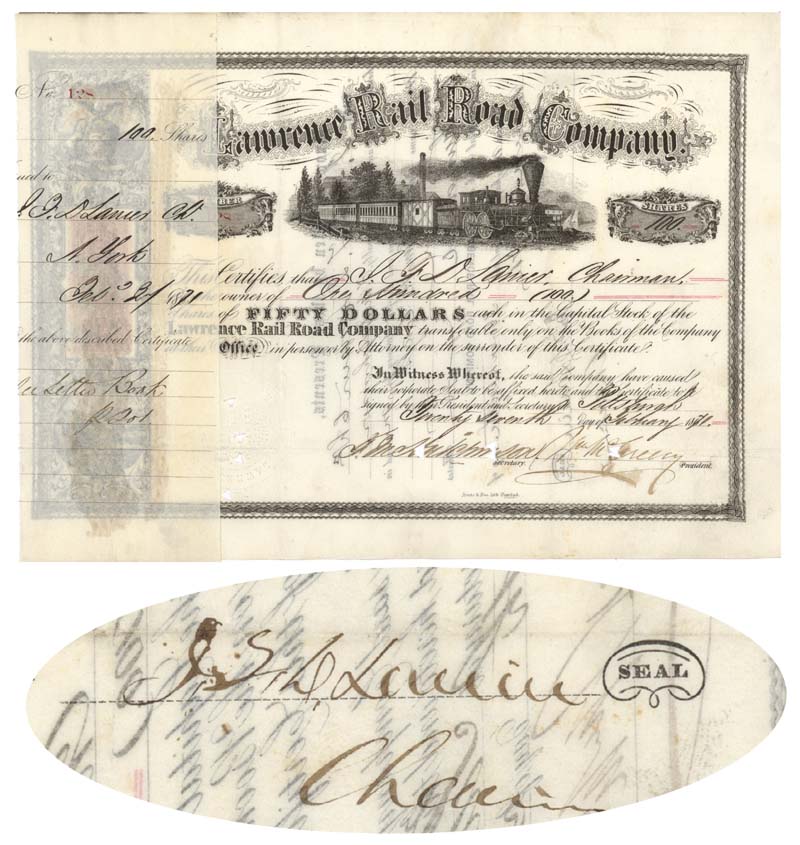 No 128
100 Shares
Lawrence Rail Road Company.
SHARES
100
J. F. D. Lanier Ch.
N. York
Feb. 27 1871
the above described Certificate
Letter Book
This Certifies that J. F. D. Lanier Chairman.
owner of One Hundred (100)
Shares of FIFTY DOLLARS each in the Capital Stock of the
Lawrence Rail Road Company transferable only on the Books of the Company
Office in person or by Attorney on the surrender of this Certificate.
In Witness Whereof, the said Company have caused
their Corporate Seal to be affixed hereto and this certificate to be
signed by their President and Secretary
Twenty Seventh day of February 1871.
Secretary. President.
J. F. D. Lanier SEAL
Chairm